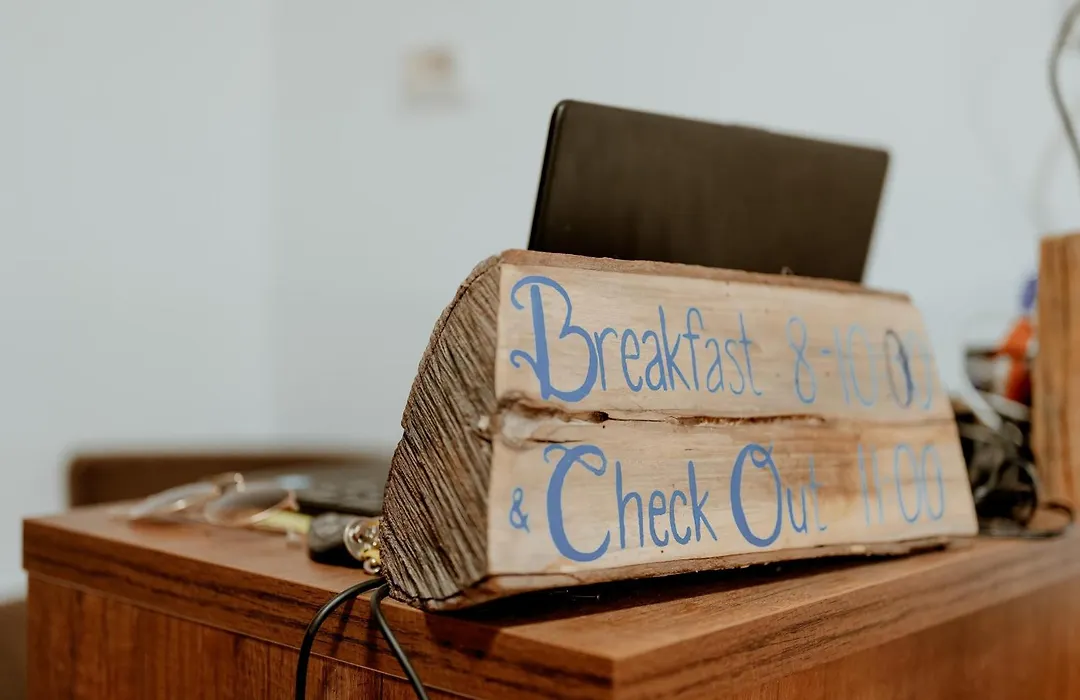 Breakfast 8-10:00
& Check Out 11:00